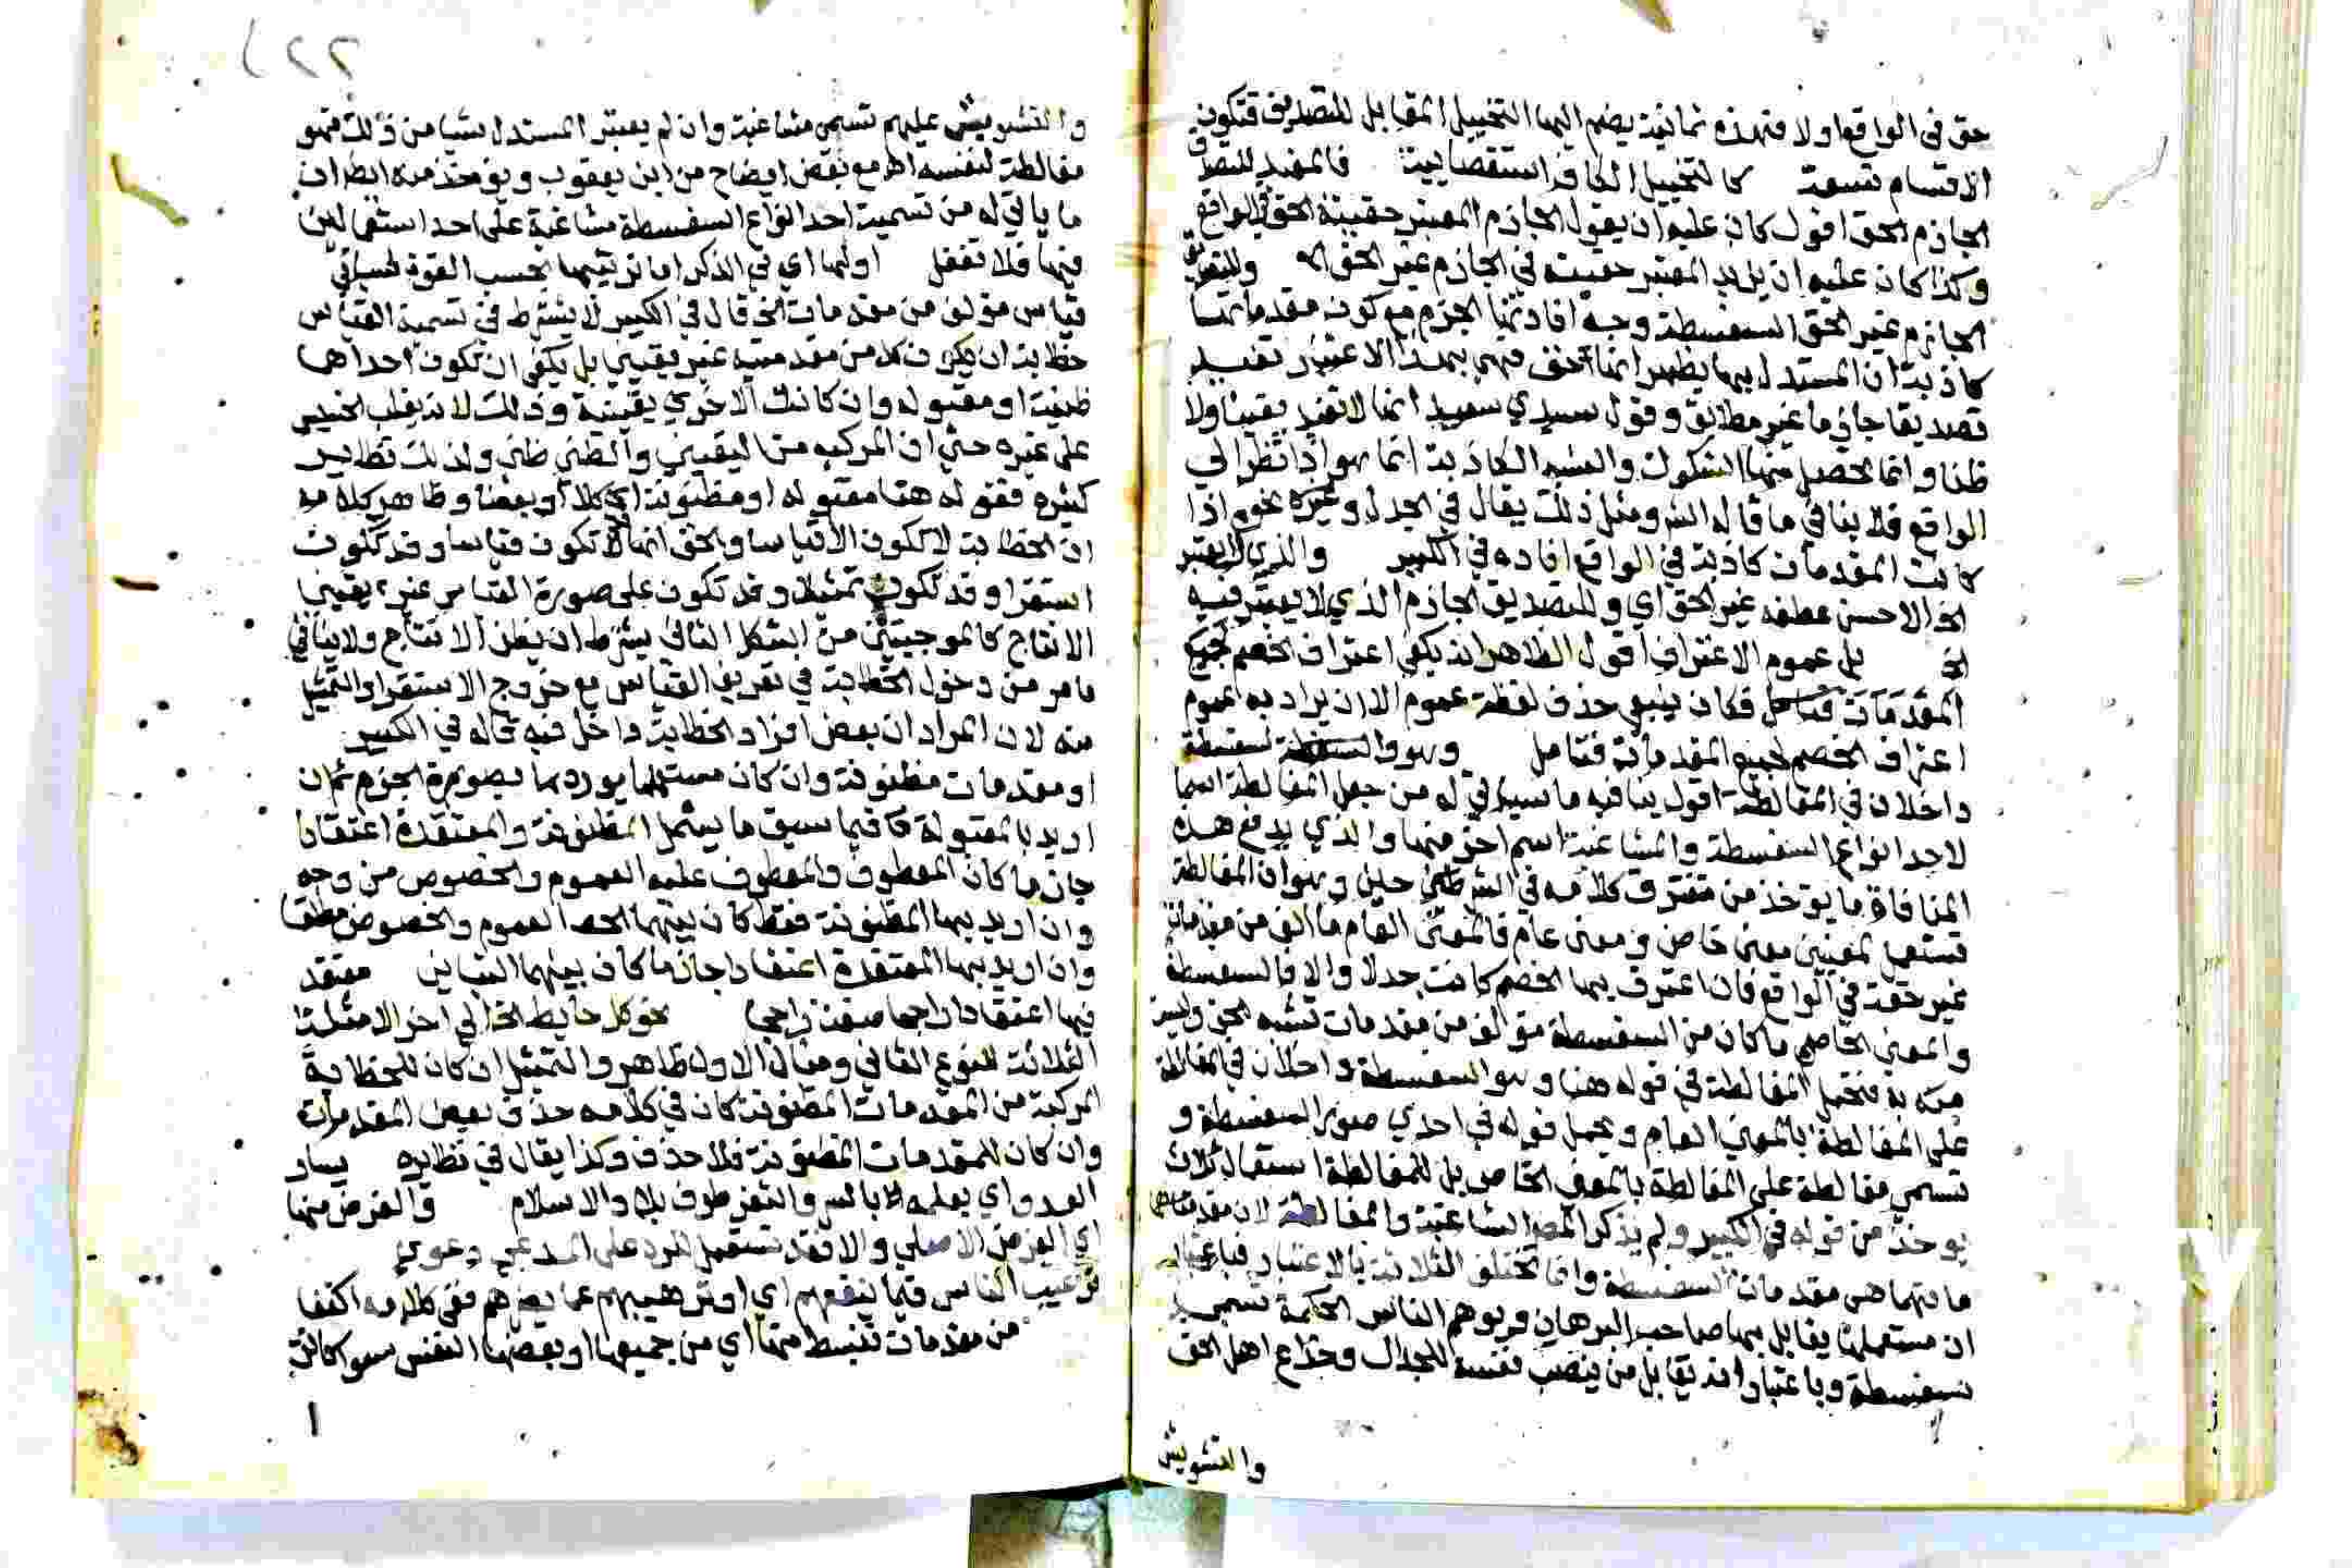 حق في الواقع اولا فهذه ثمانية يضم اليها التخييل المقابل للتصديق فتكون
الاقسام تسعة كالتخييل الكافر استقصايية فالمفيد للتصديق
الجازم الحق اقول كان عليه ان يقول الجازم المعتبر حقيته الحق في الواقع
وكذا كان عليه ان يزيد المعتبر حقيته في الجازم غير الحق اﻫ وللتصديق
الجازم غير الحق السفسطة وجه افادتها الجزم مع كون مقدماتها
كاذبة ان المستدل بها يظهر انها حق فهي بهذا الاعتبار تفيد
تصديقا جازما غير مطابق وقول سيدي سعيد انها لا تفيد يقينا ولا
ظنا وانما يحصل منها الشكوك والشبه الكاذبة انما هو اذا نظر الي
الواقع فلا ينافي ما قاله الش ومثل ذلك يقال في الجدل وغيره نحوه اذا
كانت المقدمات كاذبة في الواقع افاده في الكبير والذي لا يعتبر
الخ الاحسن عطفه غير الحق اي وللتصديق الجازم الذي لا يعتبر فيه
الخ بل عموم الاعتراف اقول الظاهر انه يكفي اعتراف الخصم بجميع
المقدمات فكان ينبغي حذف لفظة عموم الا ان يراد به عموم
اعتراف الخصم لجميع المقدمات فتامل وهو والسفسطة
داخلان في المغالطة اقول ينافيه ما سياتي له من جعل المغالطة اسما
لاحد انواع السفسطة والمشاغبة اسم اخر منها والذي يدفع هذه
المنافاة ما يوخذ من متفرق كلامه في الشرحين وهو ان المغالطة
تستعمل لمعنيين معنى خاص ومعنى عام فالمعنى العام ما الف من مقدمات
غير حقة في الواقع فان اعترف بها الخصم كانت جدلا والا فالسفسطة
والمعنى الخاص ما كان من السفسطة مؤلف من مقدمات تشبه الحق وليس
فتحمل المغالطة في قوله هنا وهو والسفسطة داخلان في المغالطة
على المغالطة بالمعنى العام ويحمل قوله في احدي صور السفسطة و
تسمي مغالطة على المغالطة بالمعنى الخاص بل للمغالطة استعمال ثالث
يوخذ من قوله في الكبير ولم يذكر المص المشاغبة والمغالطة لان مقدماتهما
مقدمات السفسطة وانما تختلف الثلاثة بالاعتبار فباعتبار
ان مستعملها يقابل بها صاحب البرهان ويوهم الناس الحكمة تسمي
سفسطة وباعتبار انه يقابل من ينصب نفسه للجدال وخداع اهل الحق
والتشويش
(٢٢
والتشويش عليهم تسمى مشاغبة وان لم يعتبر المستدل شيا من ذلك فهو
مغالطة لنفسه اﻫ مع بعض ايضاح من ابن يعقوب ويؤخذ منه ايضا ان
ما ياتي له من تسمية احد انواع السفسطة مشاغبة على احد استعمالين
فيها فلا تغفل اولها اي في الذكر اما ترتيبها بحسب القوة فسياتي
قياس مؤلف من مقدمات الخ قال في الكبير لا يشترط في تسمية القياس
خطابة ان يكون كلا من مقدمتيه غير يقيني بل يكفي ان تكون احداهما
ظنية او مقبولة وان كانت الاخري يقينية وذلك لانه يغلب الخسيس
على غيره حتي ان المركب من اليقيني والظني ظني ولذلك نظاير
كثيره فقوله هنا مقبوله او مظنونة اي كلا او بعضا وظاهر كلامه
ان الخطابة لا تكون الا قياسا والحق انها تكون قياسا وقد تكون
استقرا وقد تكون تمثيلا وقد تكون على صورة القياس غير يقيني
الانتاج كالموجبتين من الشكل الثاني بشرط ان يظن الانتاج ولا ينافي
ما مر من دخول الخطابة في تعريف القياس مع خروج الاستقرا والتمثيل
منه لان المراد ان بعض افراد الخطابة داخل فيه قاله في الكبير
او مقدمات مظنونة وان كان مستعملها يوردها بصورة الجزم ثم ان
اريد بالمقبولة فيما سبق ما يشمل المظنونة والمعتقدة اعتقادا
جازما كان المعطوف والمعطوف عليه العموم والخصوص من وجه
وان اريد بها المظنونة فقط كان بينهما العموم والخصوص مطلقا
وان اريد بها المعتقدة اعتقادا جازما كان بينهما التباين معتقد
فيها اعتقادا راجحا نحو كل حايط الخ الي اخر الامثلة
الثلاثة للنوع الثاني ومثال الاول ظاهر والتمثيل ان كان للخطابة
المركبة من المقدمات المظنونة كان في كلامه حذف بعض المقدمات
وان كان للمقدمات المظنونة فلا حذف وكذا يقال في نظايره يسار
العدو اي يعلمه بالسر والثغر طرف بلاد الاسلام والغرض منها
اي الغرض الاصلي والا فقد تستعمل للرد على المدعي دعوي
ترغيب الناس فيما ينفعهم اي او ترهيبهم عما يضرهم ففي كلامه اكتفا
من مقدمات تنبسط منها اي من جميعها او بعضها النفس سوا كانت
١